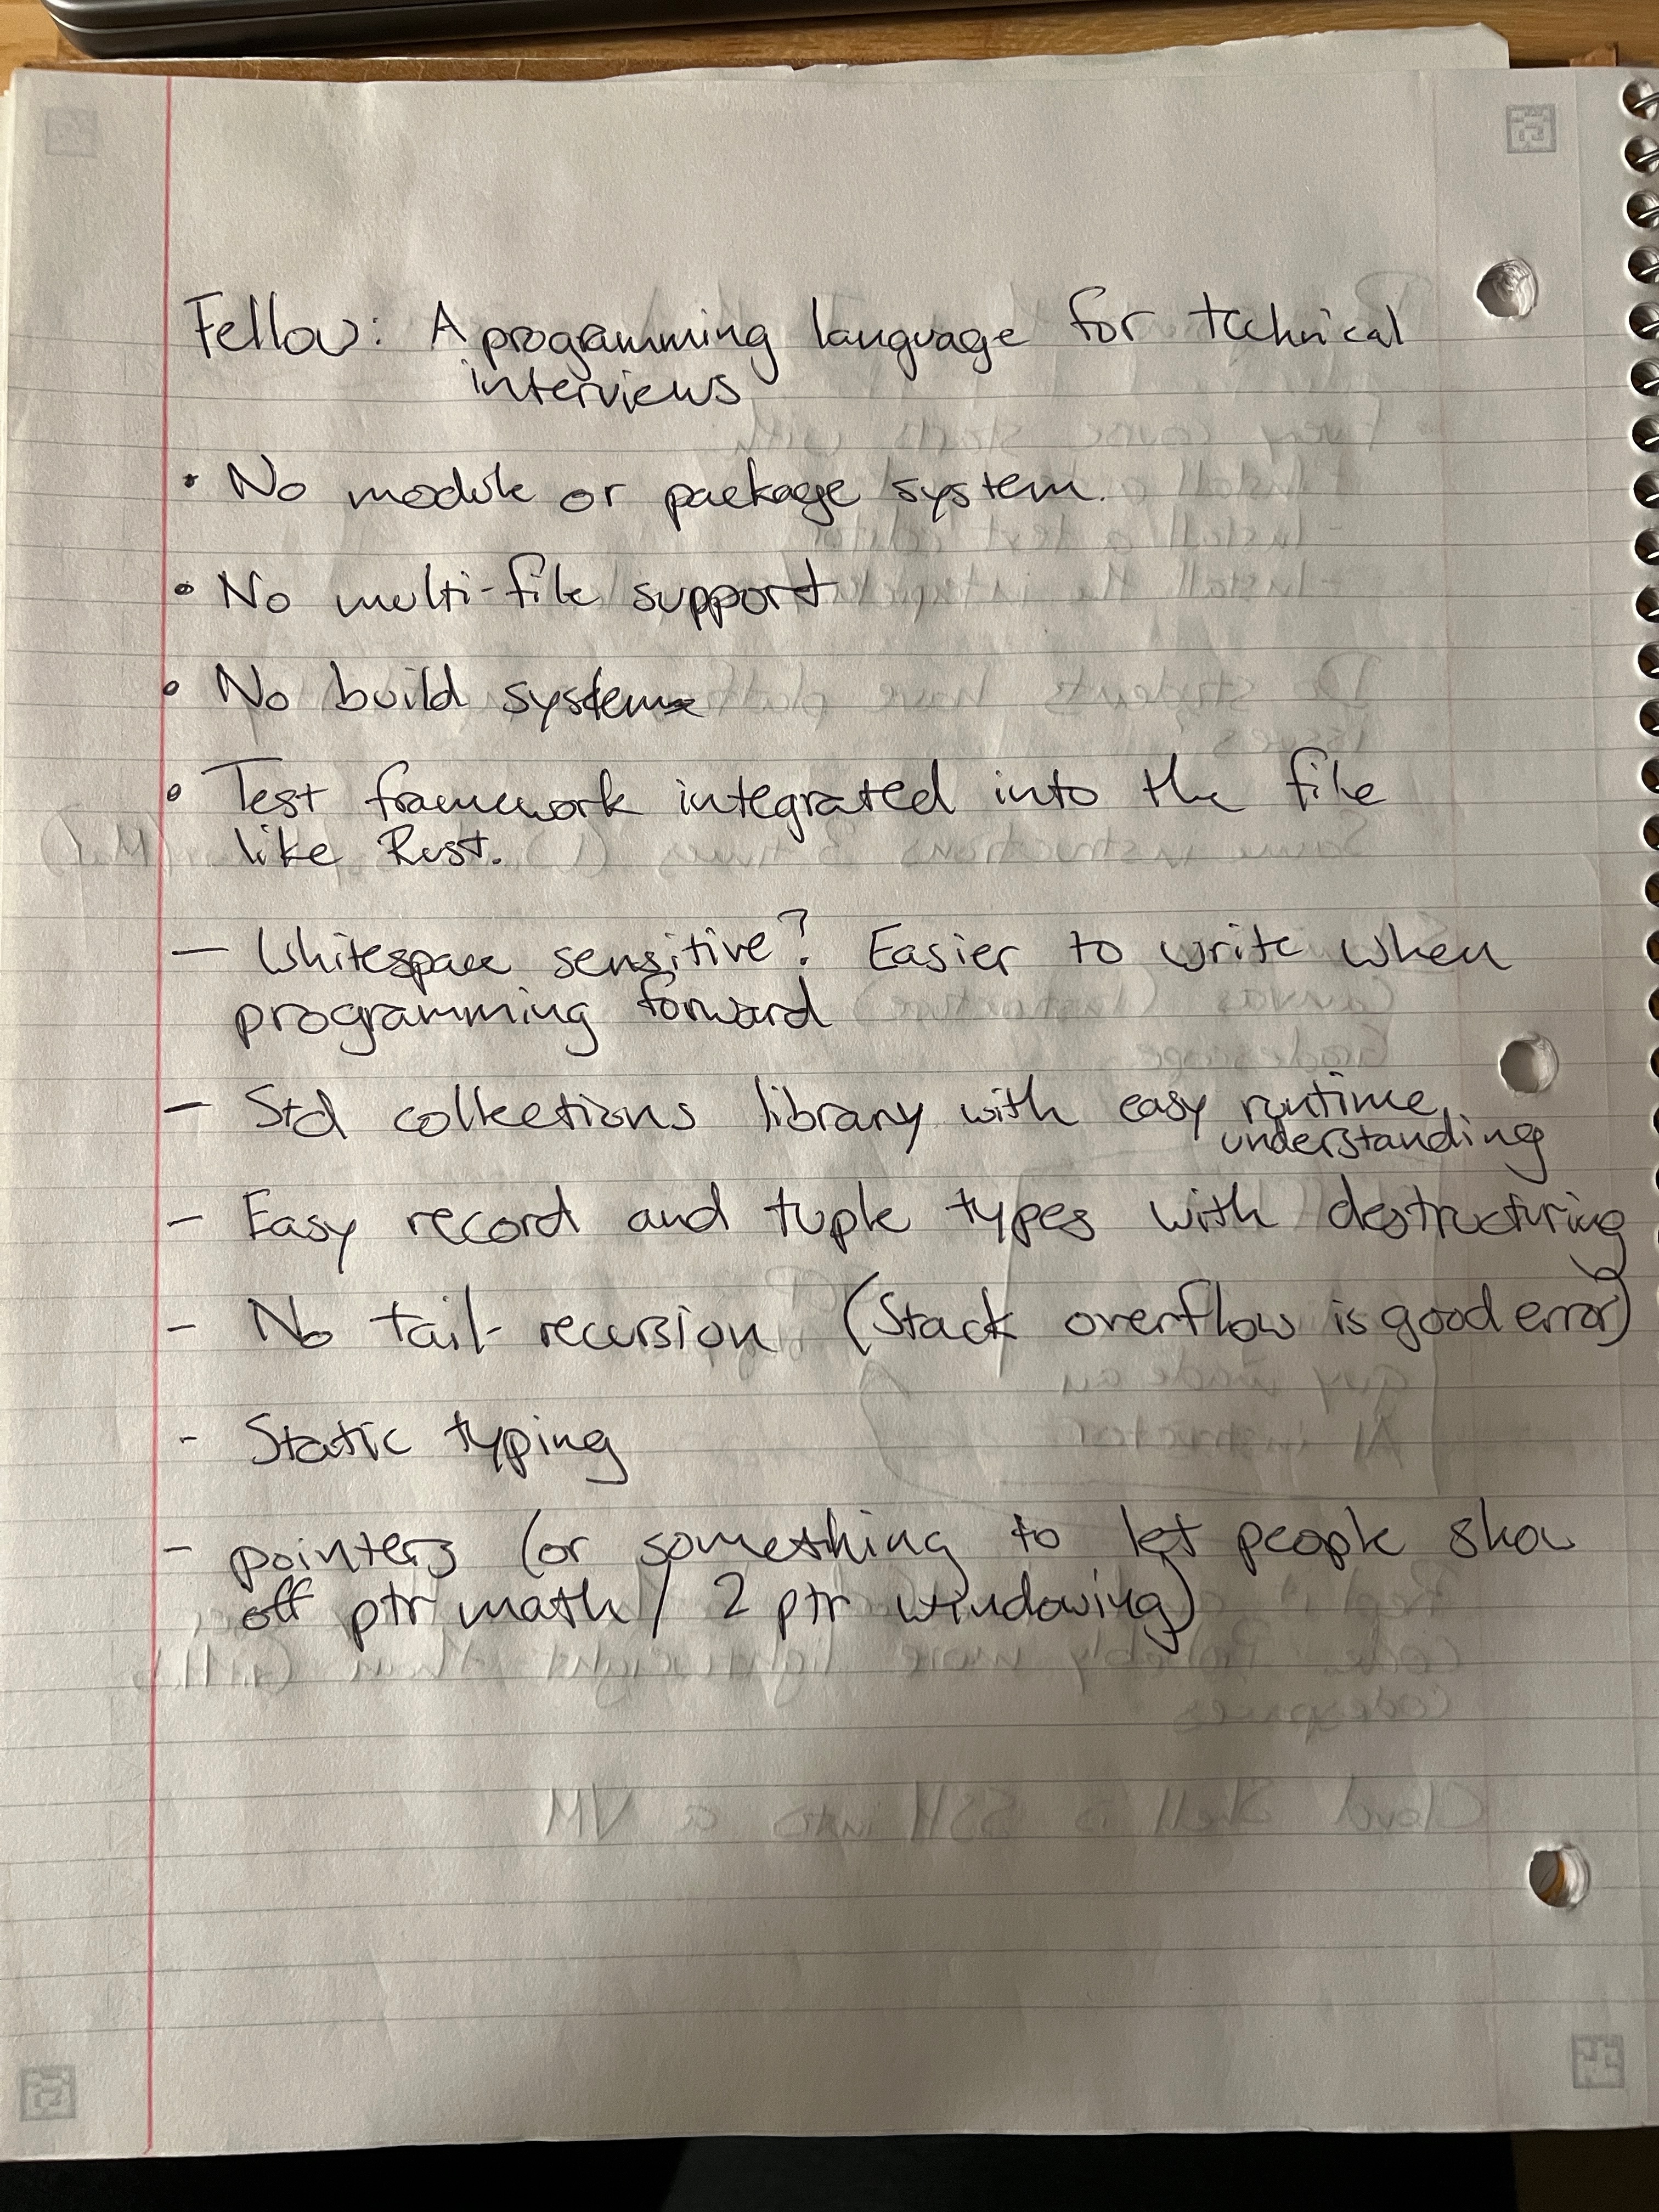 Fellow: A programming language for technical
interviews
• No module or package system.
• No multi-file support
• No build system
• Test framework integrated into the file
like Rust.
— Whitespace sensitive? Easier to write when
programming forward
— Std collections library with easy runtime
understanding
- Easy record and tuple types with destructuring
- No tail-recursion (Stack overflow is good error)
- Static typing
- pointers (or something to let people show
off ptr math / 2 ptr windowing)